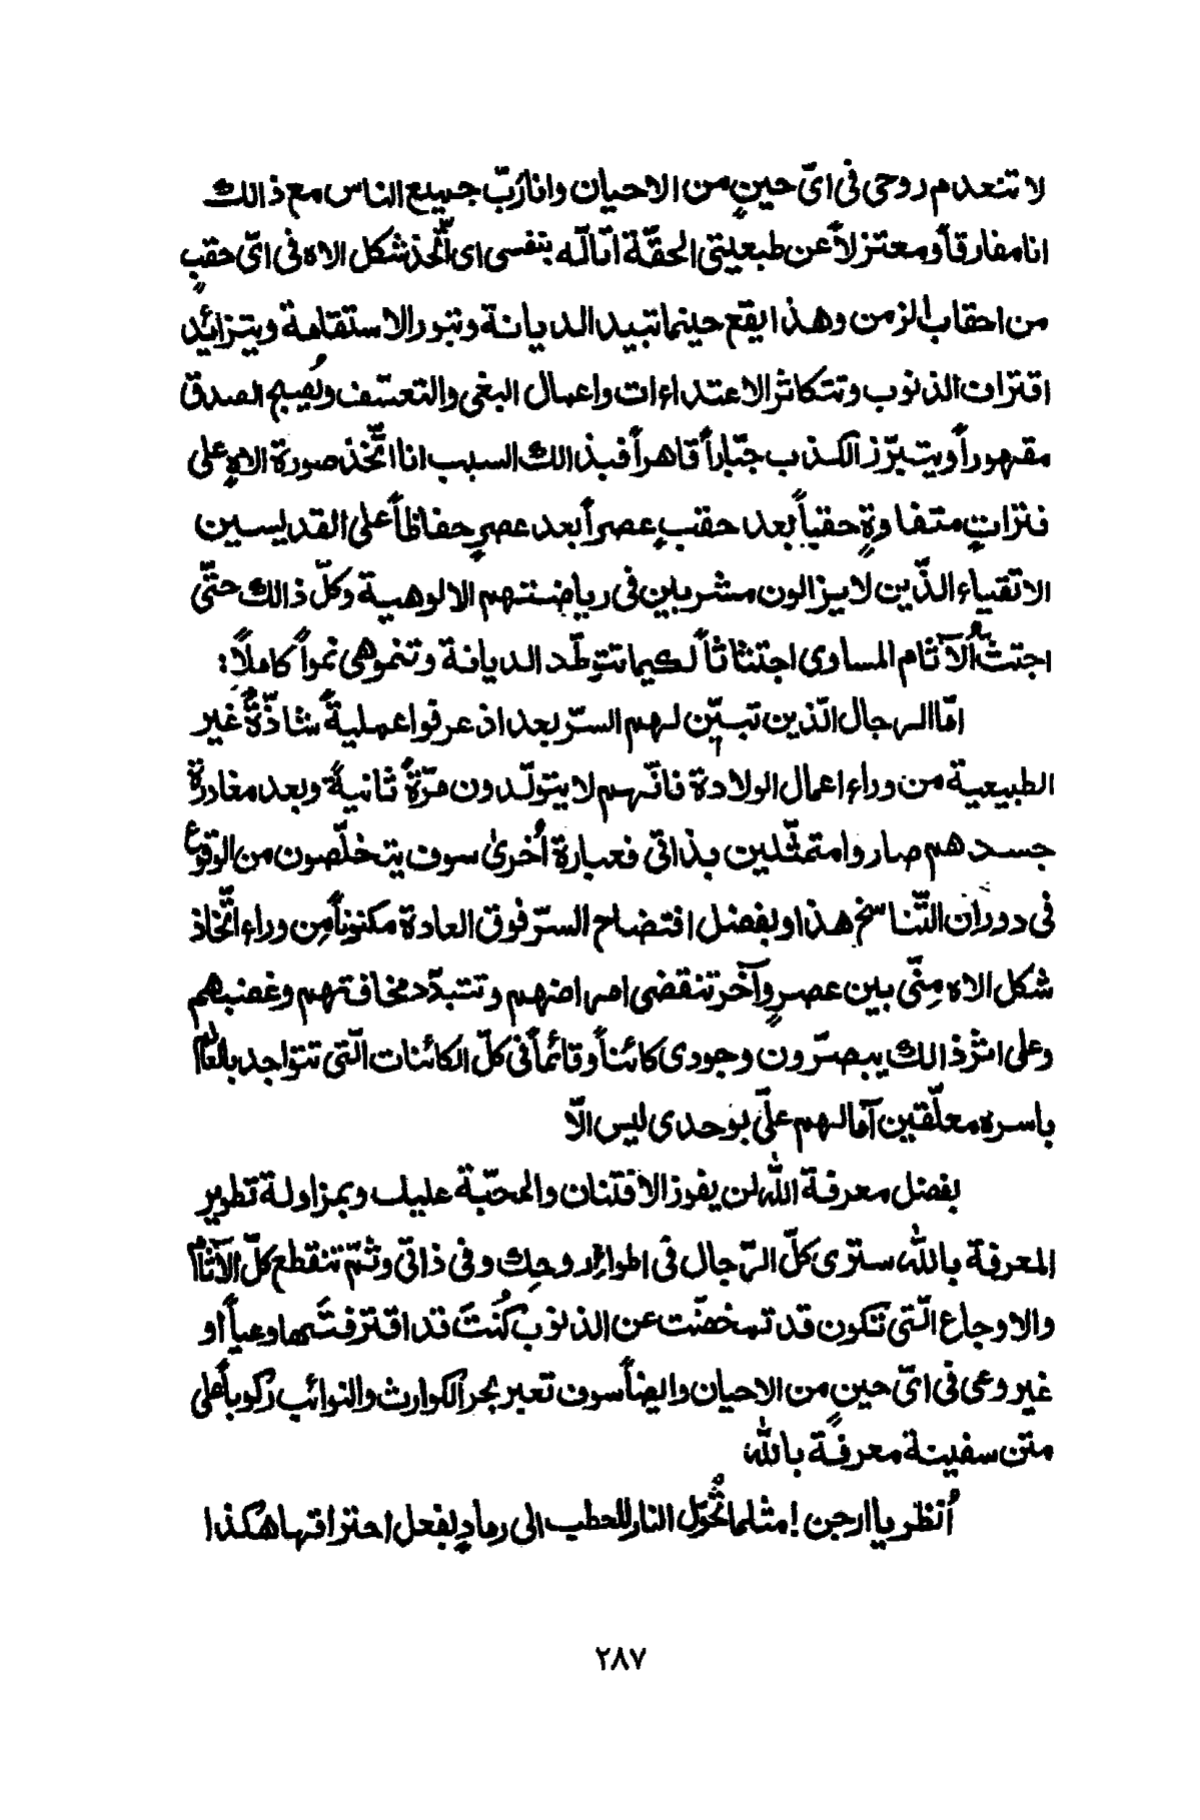 لا تنعدم روحى فى اىّ حينٍ من الاحيان وانا ربّ جميع الناس مع ذالك
انا مفارقاً ومعتزلاً عن طبعيتى الحقّة اتألّه بنفسى اى أتّخذ شكل الاه فى اىّ حقبٍ
من احقاب الزمن وهذا يقع حينما تبيد الديانة وتبور الاستقامة ويتزائد
اقتراف الذنوب وتتكاثر الاعتداءات واعمال البغى والتعسّف ويُصبح الصدق
مقهوراً ويتبرّز الكذب جبّاراً قاهراً فبذالك السبب انا اتّخذ صورة الاهٍ على
فتراتٍ متفاوةٍ حقباً بعد حقبٍ عصراً بعد عصرٍ حفاظاً على القديسين
الاتقياء الذّين لا يزالون مشربلين فى رياضتهم الالوهية وكلّ ذالك حتّى
اجتثّ الآثام المساوى اجتثاثاً لكيما تتوطّد الديانة وتنمو هى نمواً كاملاً:
امّا الرجال الّذين تبيّن لهم السرّ بعد اذ عرفوا عمليةً شاذّةً غير
الطبيعية من وراء اعمال الولادة فانّهم لا يتولّدون مرّةً ثانيةً وبعد مغادرة
جسدهم صاروا متمثّلين بذاتى فعبارة أُخرىٰ سوف يتخلّصون من الوقوع
فى دوران التّناسخ هذا وبفضل افتضاح السرّ فوق العادة مكنوناً مِن وراء اتّخاذ
شكل الاه مِنّى بين عصرٍ وآخر تنقضى امراضهم وتتبدّد مخافتهم وغضبهم
وعلى اثر ذالك يبصرّون وجودى كائناً وقائماً فى كلّ الكائنات الّتى تتواجد بالعالم
باسره معلّقين آمالهم علىّ بوحدى ليس الّا
بفضل معرفة الله لن يفوز الافتنان والمحبّة عليك وبمزاولة تطوير
المعرفة بالله سترى كلّ الرّجال فى اطوائِ روحِك وفى ذاتى وثمّ تنقطع كلّ الآثام
والاوجاع الّتى تكون قد تمخضّت عن الذنوب كُنتَ قد اقترفتَها وعياً او
غير وعى فى اىّ حين من الاحيان وايضاً سوف تعبر بحر الكوارث والنوائب ركوباً على
متن سفينة معرفةً بالله
أُنظر يا ارجن! مثلما تُحوّل النار للحطب الى رمادٍ بفعل احتراقها هكذا
٢٨٧